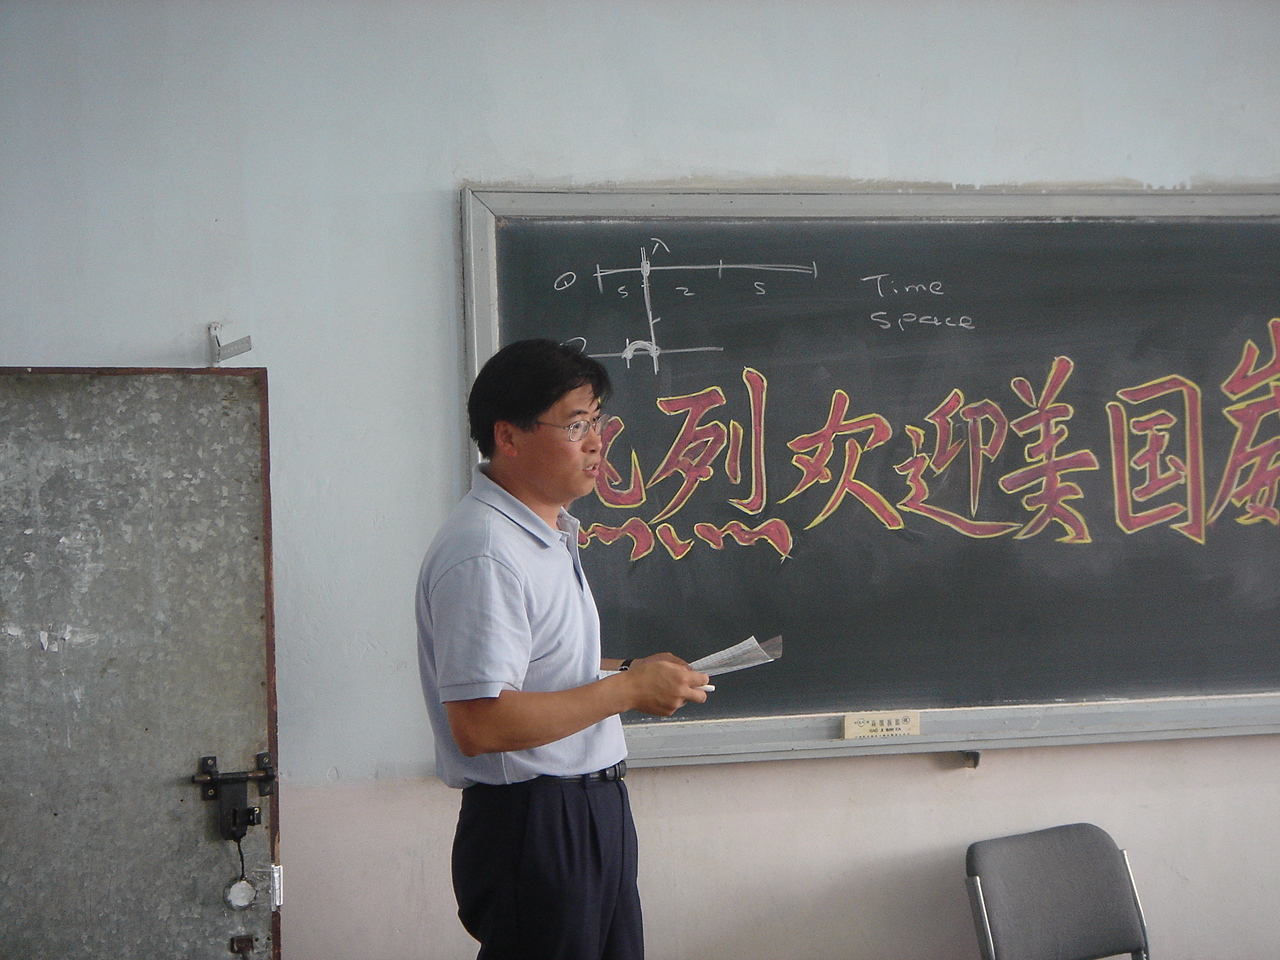 入
① 5 2 5 Time
space
热烈欢迎美国